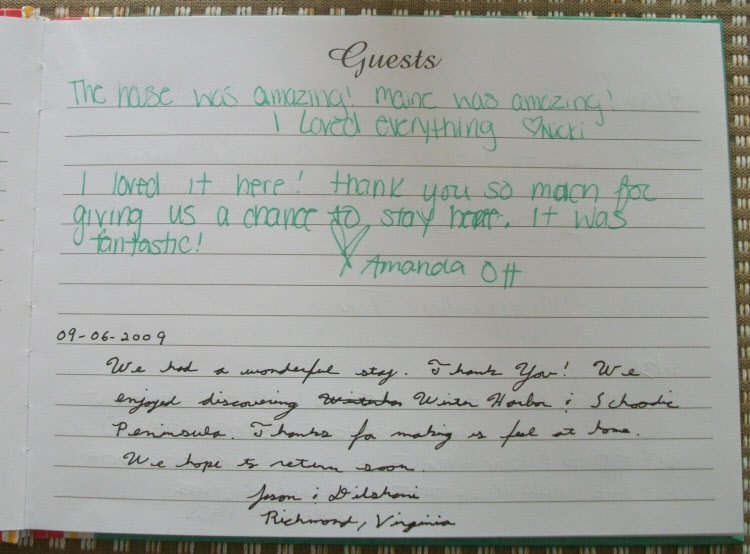 Guests
The house was amazing! maine was amazing!
I loved everything ♡Nicki
I loved it here! thank you so much for
giving us a chance to stay here. It was
fantastic!
Amanda Ott
09-06-2009
We had a wonderful stay. Thank You! We
enjoyed discovering Winter Harbor & Schoodic
Peninsula. Thanks for making us feel at home.
We hope to return soon.
Jason & Dilshani
Richmond, Virginia